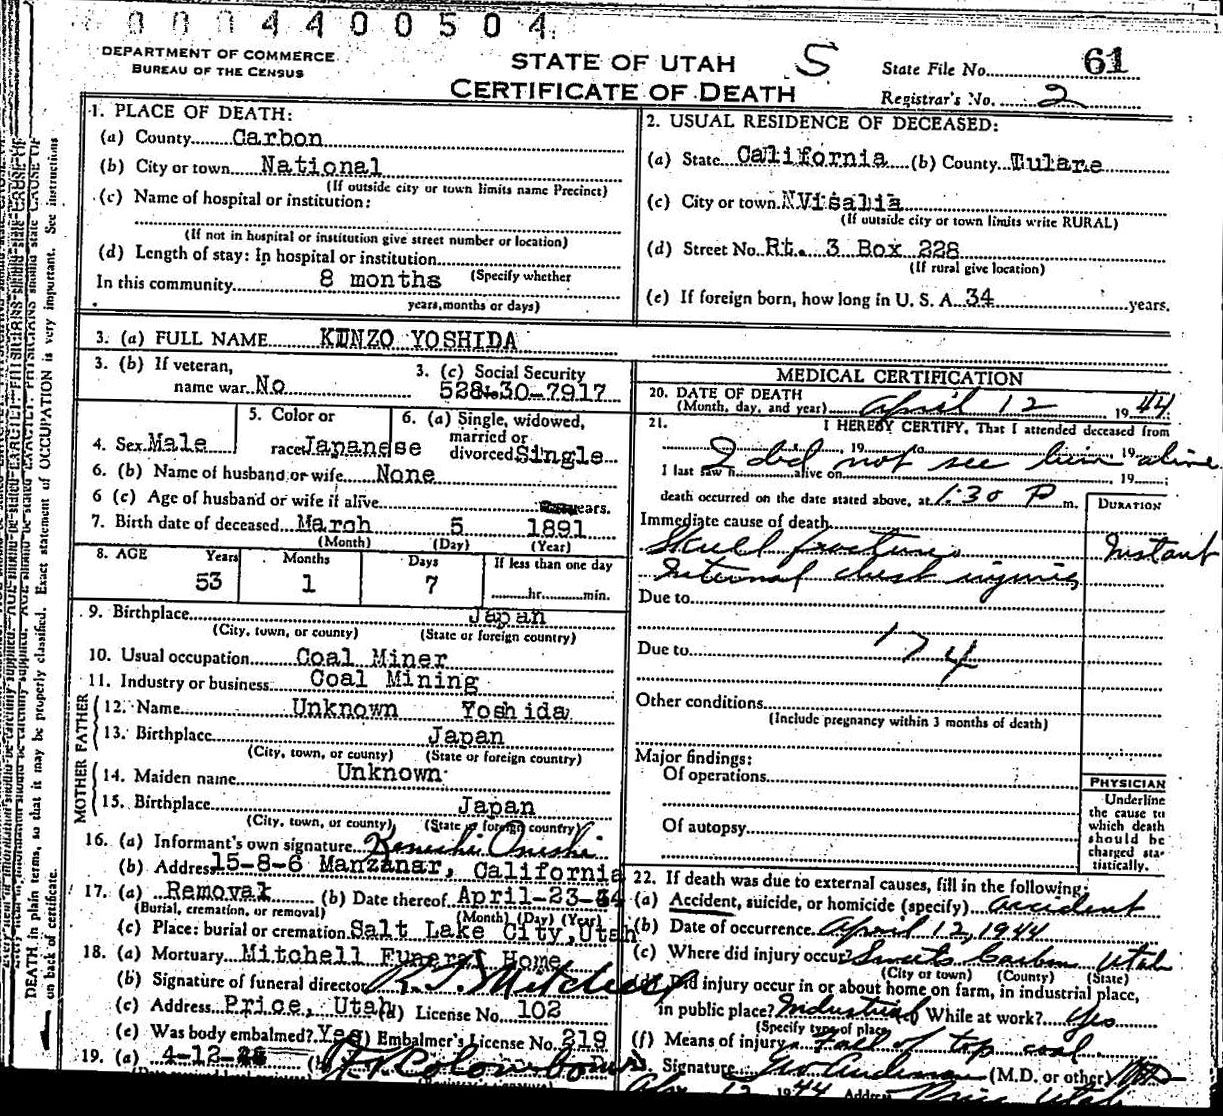 0 0 0 4 4 0 0 5 0 4
DEPARTMENT OF COMMERCE
BUREAU OF THE CENSUS
STATE OF UTAH
CERTIFICATE OF DEATH
S
State File No. 61
Registrar's No. 2
1. PLACE OF DEATH:
(a) County Carbon
(b) City or town National
(If outside city or town limits name Precinct)
(c) Name of hospital or institution:
(If not in hospital or institution give street number or location)
(d) Length of stay: In hospital or institution
(Specify whether
In this community 8 months
years, months or days)
2. USUAL RESIDENCE OF DECEASED:
(a) State California (b) County Tulare
(c) City or town NVisalia
(If outside city or town limits write RURAL)
(d) Street No. Rt. 3 Box 228
(If rural give location)
(e) If foreign born, how long in U. S. A. 34 years.
3. (a) FULL NAME KUNZO YOSHIDA
3. (b) If veteran, name war No
3. (c) Social Security 528-30-7917
4. Sex Male
5. Color or race Japanese
6. (a) Single, widowed, married or divorced Single
6. (b) Name of husband or wife None
6 (c) Age of husband or wife if alive years.
7. Birth date of deceased March 5 1891
(Month) (Day) (Year)
8. AGE Years Months Days If less than one day
53 1 7 hr. min.
9. Birthplace Japan
(City, town, or county) (State or foreign country)
10. Usual occupation Coal Miner
11. Industry or business Coal Mining
FATHER
12. Name Unknown Yoshida
13. Birthplace Japan
(City, town, or county) (State or foreign country)
MOTHER
14. Maiden name Unknown
15. Birthplace Japan
(City, town, or county) (State or foreign country)
16. (a) Informant's own signature
(b) Address 15-8-6 Manzanar, California
17. (a) Removal (b) Date thereof April-23-44
(Burial, cremation, or removal) (Month) (Day) (Year)
(c) Place: burial or cremation Salt Lake City, Utah
18. (a) Mortuary Mitchell Funeral Home
(b) Signature of funeral director R. F. Mitchell
(c) Address Price, Utah (d) License No. 102
(e) Was body embalmed? Yes (f) Embalmer's License No. 219
19. (a) 4-12-
MEDICAL CERTIFICATION
20. DATE OF DEATH
(Month, day, and year) April 12 1944
21. I HEREBY CERTIFY, That I attended deceased from
, 19 to , 19
I last saw h alive on , 19 ;
I did not see him alive
death occurred on the date stated above, at 1:30 P m.
DURATION
Immediate cause of death
Skull fracture Instant
Internal chest injuries
Due to
Due to 174
Other conditions
(Include pregnancy within 3 months of death)
Major findings:
Of operations
Of autopsy
PHYSICIAN
Underline
the cause to
which death
should be
charged sta-
tistically.
22. If death was due to external causes, fill in the following:
(a) Accident, suicide, or homicide (specify) accident
(b) Date of occurrence April 12, 1944
(c) Where did injury occur? Sweets Carbon Utah
(City or town) (County) (State)
(d) Did injury occur in or about home on farm, in industrial place,
in public place? Industrial While at work? yes
(Specify type of place
(f) Means of injury Fall of top coal
Signature Geo Anderson (M.D. or other) MD
12 1944 Address Price Utah
DEATH in plain terms, so that it may be properly classified. Exact statement of OCCUPATION is very important. See instructions
on back of certificate.